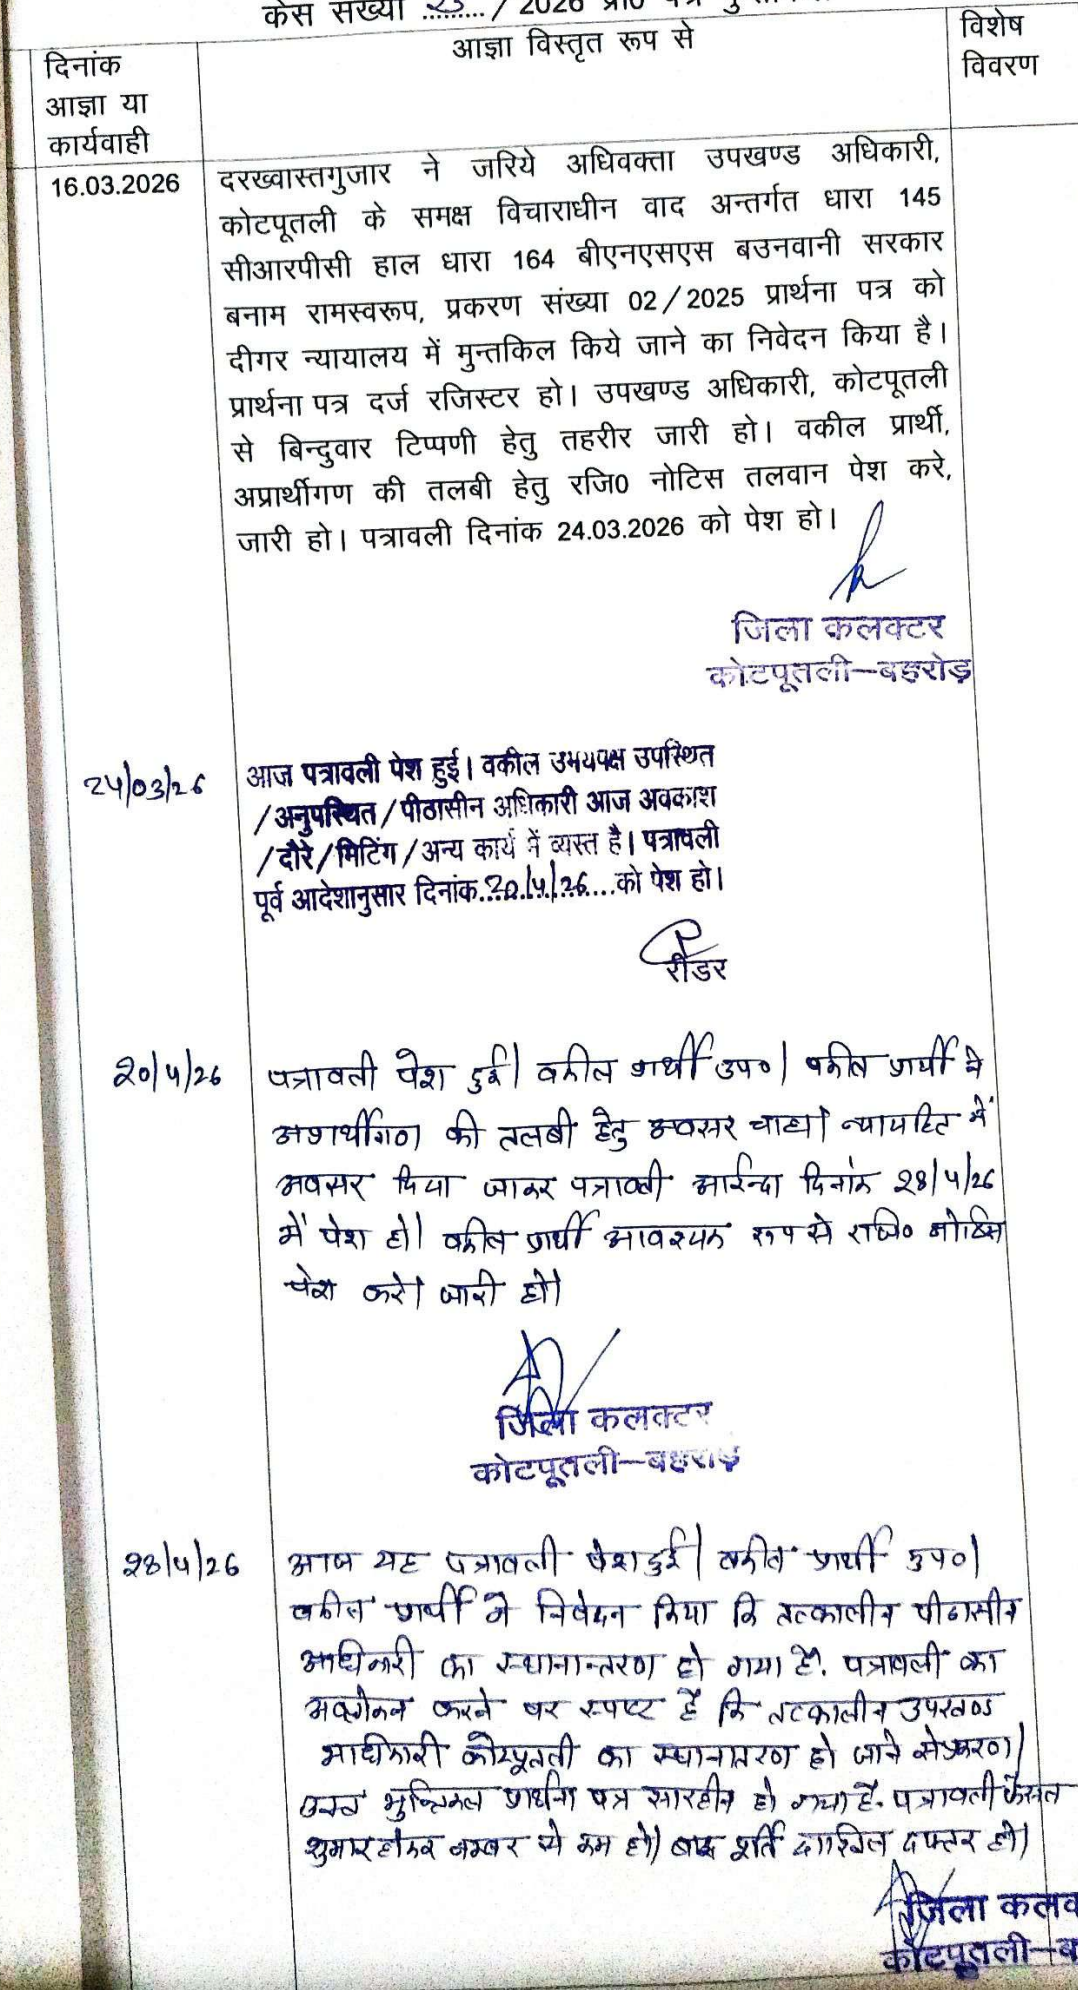 केस संख्या 23 / 2026 प्रा0 पत्र
दिनांक
आज्ञा या
कार्यवाही
आज्ञा विस्तृत रूप से
विशेष
विवरण
16.03.2026
दरख्वास्तगुजार ने जरिये अधिवक्ता उपखण्ड अधिकारी,
कोटपूतली के समक्ष विचाराधीन वाद अन्तर्गत धारा 145
सीआरपीसी हाल धारा 164 बीएनएसएस बउनवानी सरकार
बनाम रामस्वरूप, प्रकरण संख्या 02/2025 प्रार्थना पत्र को
दीगर न्यायालय में मुन्तकिल किये जाने का निवेदन किया है।
प्रार्थना पत्र दर्ज रजिस्टर हो। उपखण्ड अधिकारी, कोटपूतली
से बिन्दुवार टिप्पणी हेतु तहरीर जारी हो। वकील प्रार्थी,
अप्रार्थीगण की तलबी हेतु रजि0 नोटिस तलवान पेश करे,
जारी हो। पत्रावली दिनांक 24.03.2026 को पेश हो।
जिला कलक्टर
कोटपूतली–बहरोड़
24/03/26
आज पत्रावली पेश हुई। वकील उभयपक्ष उपस्थित
/अनुपस्थित/पीठासीन अधिकारी आज अवकाश
/दौरे/मिटिंग/अन्य कार्य में व्यस्त है। पत्रावली
पूर्व आदेशानुसार दिनांक..20/4/26....को पेश हो।
रीडर
20/4/26
पत्रावली पेश हुई। वकील प्रार्थी उप०। वकील प्रार्थी ने
अप्रार्थीगण की तलबी हेतु अवसर चाहा। न्यायहित में
अवसर दिया जाकर पत्रावली आईन्दा दिनांक 28/4/26
में पेश हो। वकील प्रार्थी आवश्यक रूप से रजि० नोटिस
पेश करे। जारी हो।
जिला कलक्टर
कोटपूतली–बहरोड़
28/4/26
आज यह पत्रावली पेश हुई। वकील प्रार्थी उप०।
वकील प्रार्थी ने निवेदन किया कि तत्कालीन पीठासीन
अधिकारी का स्थानान्तरण हो गया है. पत्रावली का
अवलोकन करने पर स्पष्ट है कि तत्कालीन उपखण्ड
अधिकारी कोटपूतली का स्थानातरण हो जाने से प्रकरण
मुन्तिकल प्रार्थना पत्र सारहीन हो गया है. पत्रावली फैसल
शुमार होकर नम्बर से कम हो। बाद पूर्ति दाखिल दफ्तर हो।
जिला कलक
कोटपूतली–ब